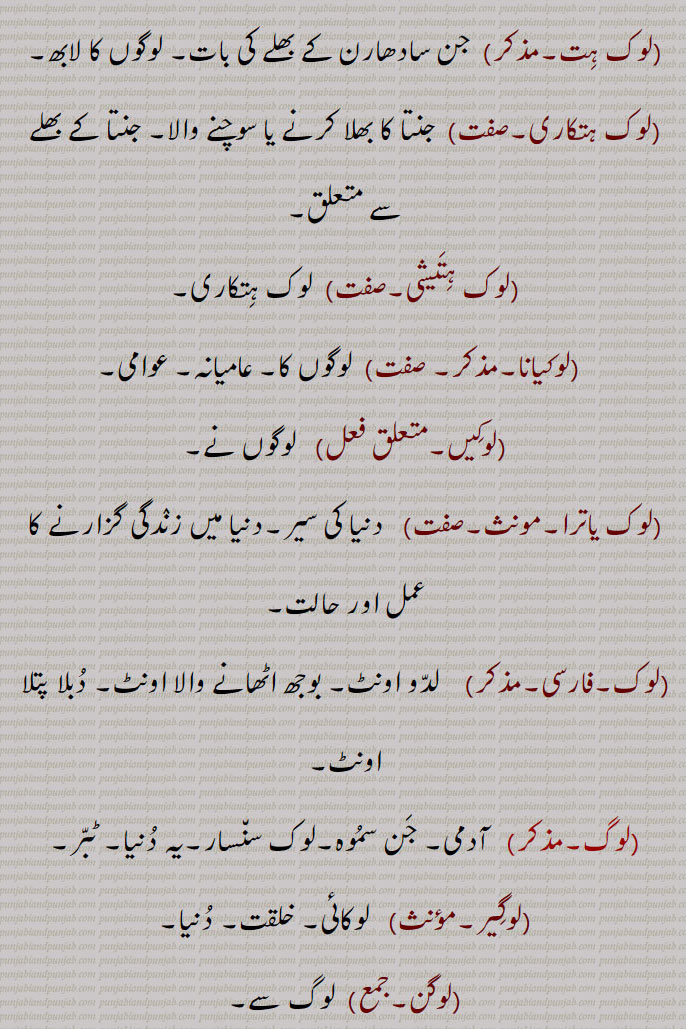 (لوک ہِت۔مذکر) جن سادھارن کے بھلے کی بات۔ لوگوں کا لابھ۔
(لوک ہتکاری۔صفت) جنتا کا بھلا کرنے یا سوچنے والا۔ جنتا کے بھلے
سے متعلق۔
(لوک ہِتَیشی۔صفت) لوک ہِتکاری۔
(لوکیانا۔مذکر۔ صفت) لوگوں کا۔ عامیانہ۔ عوامی۔
(لوکِیں۔متعلق فعل) لوگوں نے۔
(لوک یاترا۔مونث۔صفت) دنیا کی سیر۔دنیا میں زنْدگی گزارنے کا
عمل اور حالت۔
(لوک۔فارسی۔مذکر) لدّو اونٹ۔ بوجھ اٹھانے والا اونٹ۔ دُبلا پتلا
اونٹ۔
(لوگ۔مذکر) آدمی۔ جَن سمُوہ۔لوک سنّسار۔یہ دُنیا۔ ٹبّر۔
(لوگِیر۔مؤنث) لوکائی۔ خلقت۔ دُنیا۔
(لوگن۔جمع) لوگ سے۔